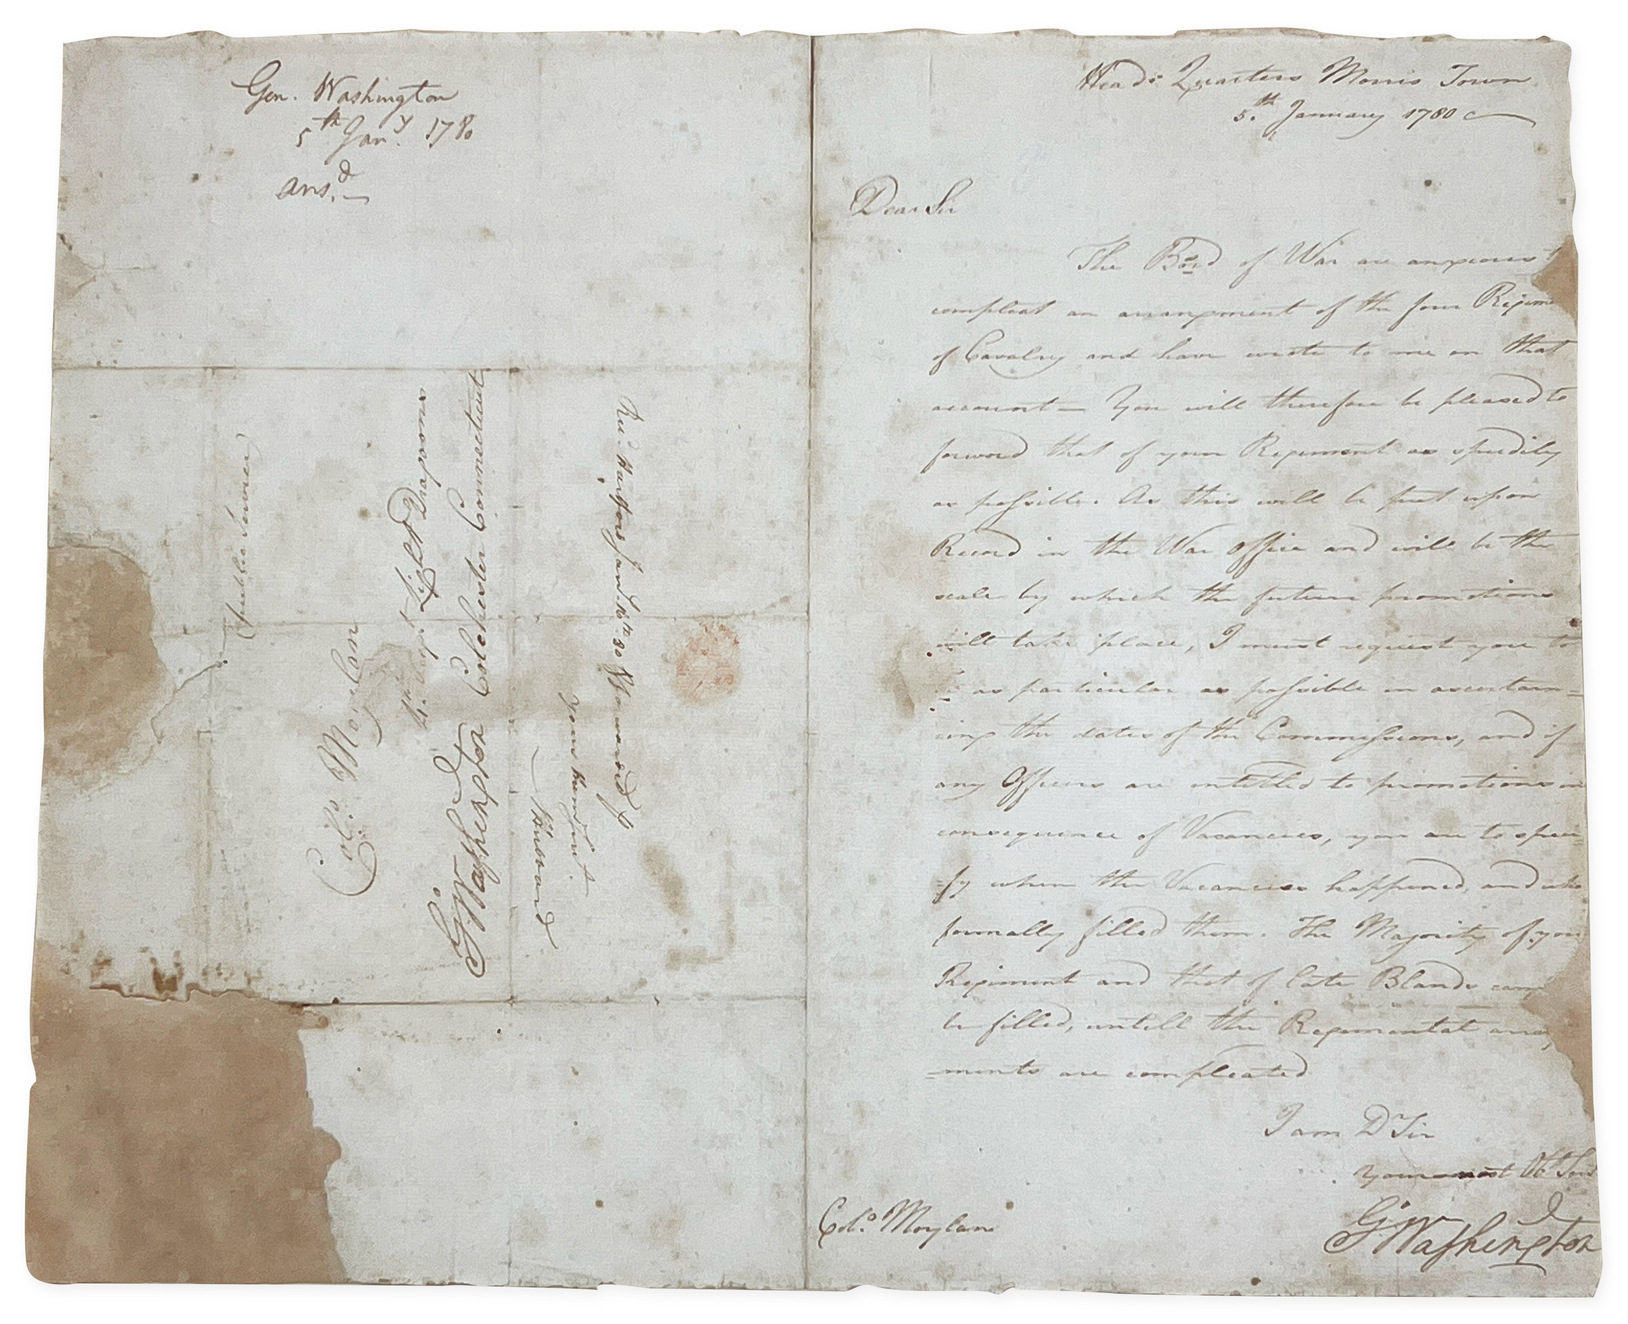 Gen. Washington
5th Jany. 1780
ansd.
Public Service
Colo. Moylan
4th Regt. Light Dragoons
Colchester Connecticut
Go Washington
Recd. Hartford Jany. 80 & Forwarded by
Your Humb Sert
Hubbard
Head Quarters Morris Town
5th. January 1780
Dear Sir
The Board of War are anxious t
compleat an arrangement of the four Regime
of Cavalry and have wrote to me on that
account — You will therefore be pleased to
forward that of your Regiment as speedily
as possible. As this will be put upon
Record in the War Office and will be the
scale by which the future promotions
will take place, I must request you to
as particular as possible in ascertain=
ing the dates of the Commissions, and if
any Officers are intitled to promotions in
consequence of Vacancies, you are to speci=
=fy when the Vacancies happened, and who
formally filled them. The Majority of your
Regiment and that of late Blands can
be filled, untill the Regimental arran
=ments are compleated
I am Dr Sir
Your most Obt Servt
Colo. Moylan
Go Washington